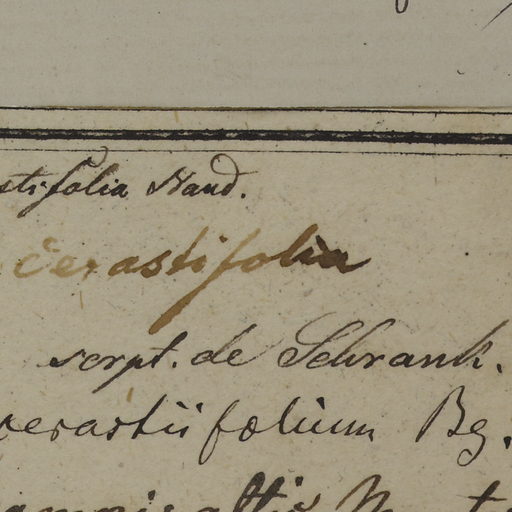 stifolia Nand.
cerastifolia
script. de Schrank.
cerastiifolium Bg.